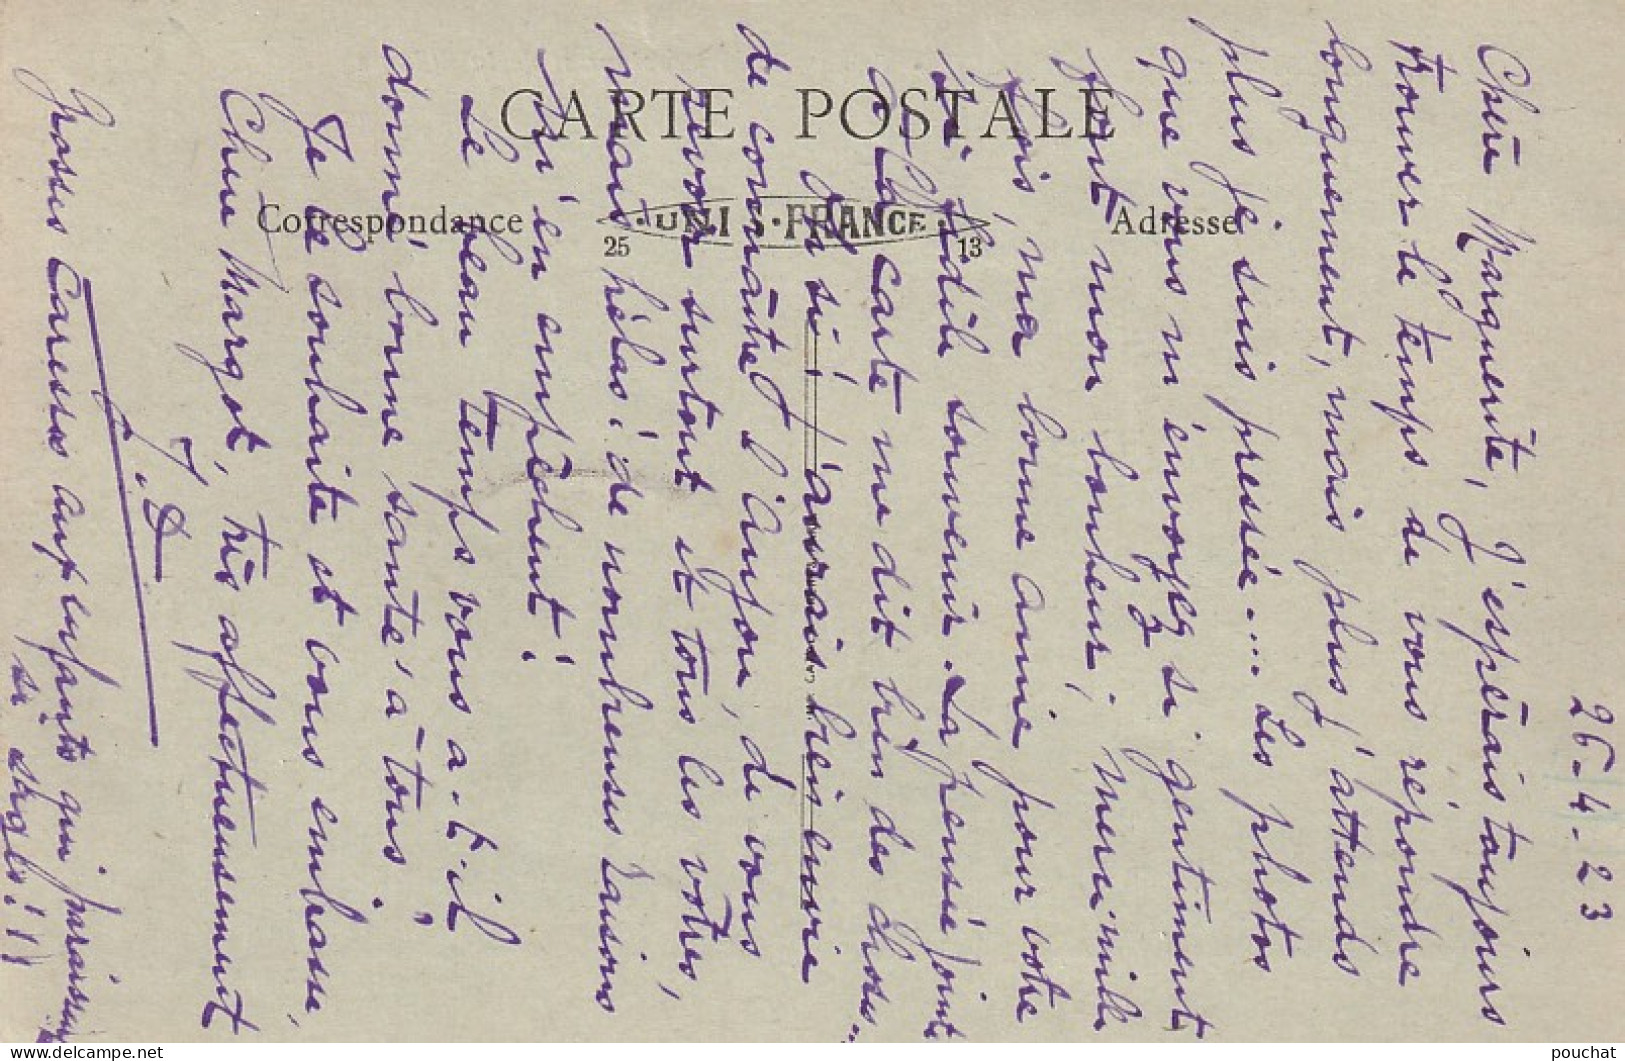 CARTE POSTALE
Correspondance
UNIS-FRANCE
25
13
Adresse
26-4-23
Chère Marguerite, J'espérais toujours
trouver le temps de vous répondre
longuement, mais plus j'attends
plus je suis pressée.... Les photos
que vous m'envoyez si gentiment
font mon bonheur; merci mille
fois, ma bonne amie pour votre
si fidèle souvenir. La pensée jointe
à la carte me dit bien des choses...
Ah si! j'aurais bien envie
de connaître l'Anjou, de vous
revoir surtout et tous les vôtres,
mais hélas! de nombreuses raisons
m'en empêchent!
Le beau temps vous a-t-il
donné bonne santé à tous?
Je le souhaite et vous embrasse,
Chère Margot, très affectueusement
J.D
Grosses Caresses aux enfants qui paraissent
si sages!!!
pouchat